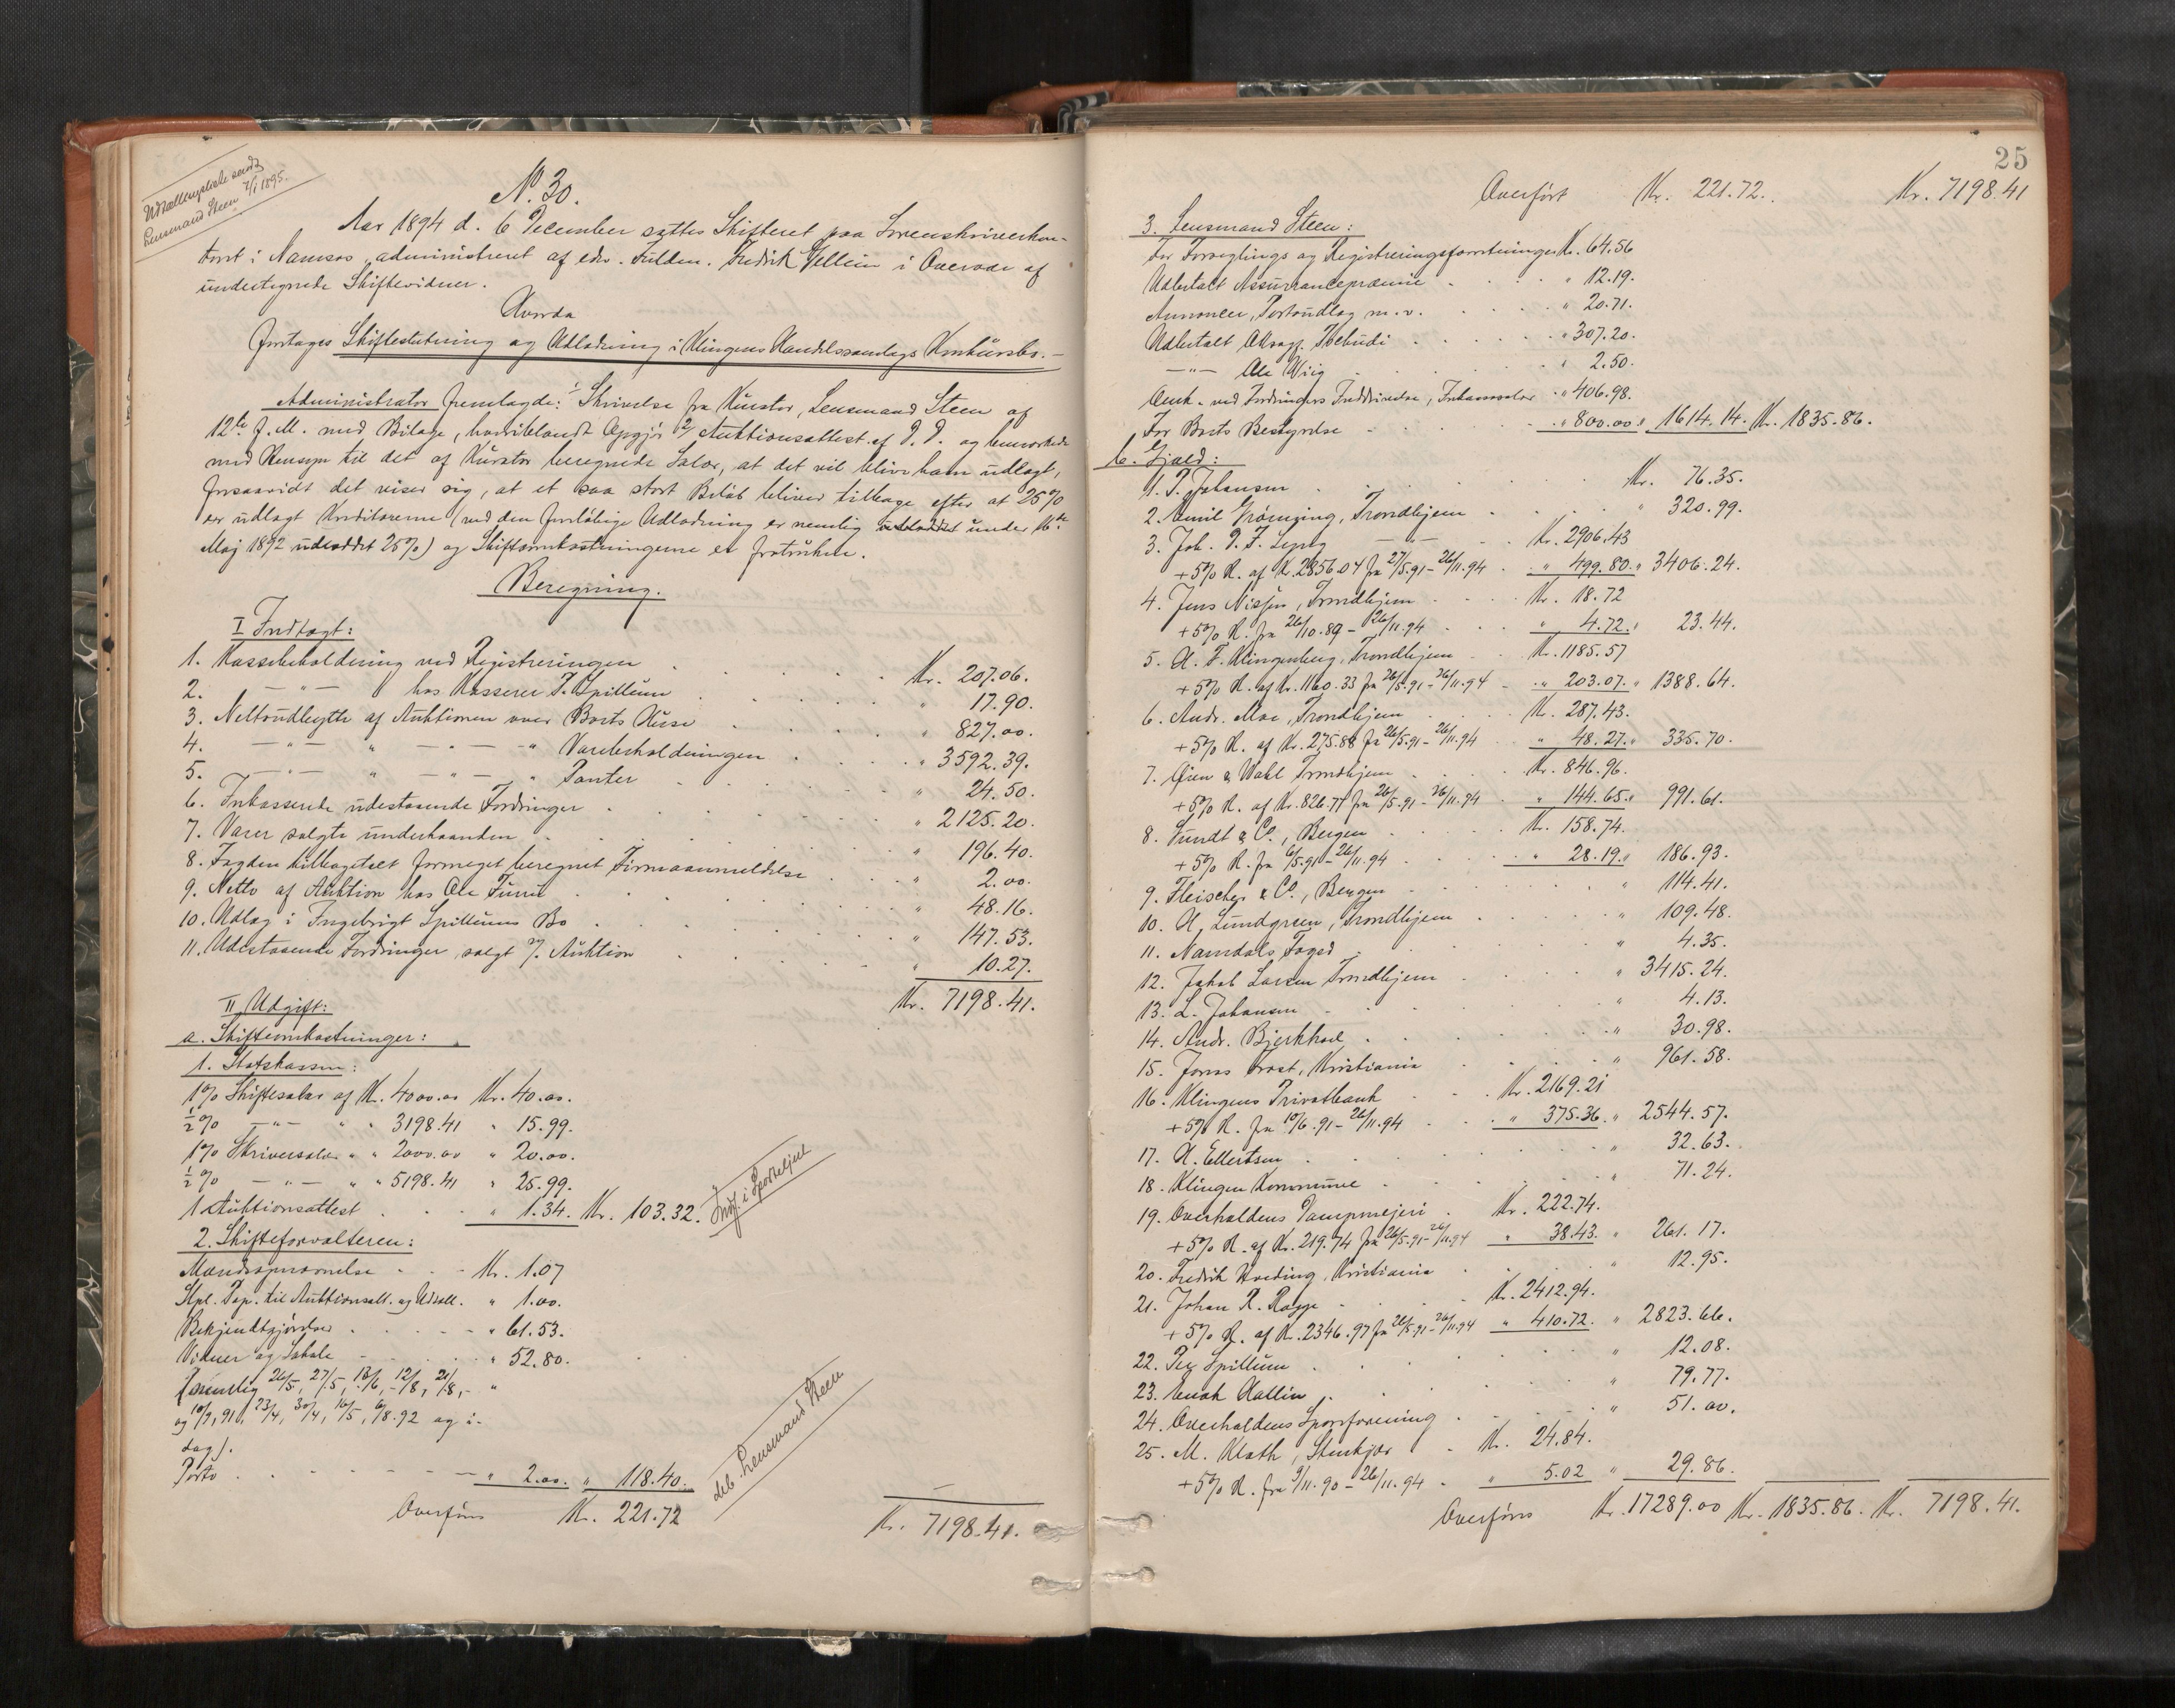 Udtællingsliste sendt
Lensmand Steen 2/1 1895.
No. 30.
Aar 1894 d. 6 December sattes Skifteret paa Sorenskriverkon-
toret i Namsos, administreret af edsv. Fuldm. Fredrik Vellein i Overvær af
undertegnede Skiftevidner.
Hvorda
foretoges Skifteslutning og Udlodning i Klingens Handelssamlags Konkursbo. -
Administrator fremlagde: 1/ Skrivelse fra Kurator, Lensmand Steen af
12te f. M. med Bilage, hvoriblandt Opgjör 2/ Auktionsattest af D. D. og bemærkede
med Hensyn til det af Kurator beregnede Salær, at det vil blive ham udlagt,
forsaavidt det viser sig, at et saa stort Belöb bliver tilbage efter at 25%
er udlagt Kreditorerne (ved den forelöbige Udlodning er nemlig under 16de
Maj 1892 udloddet 25%) og Skifteomkostningerne er fratrukne.
Beregning.
I Indtægt:
1. Kassebeholdning ved Registreringen . . . Kr. 207.06.
2. —"— hos Kasserer P. Spillum . . . " 17.90.
3. Nettoudbytte af Auktionen over Boets Huse . . . " 827.00.
4. —"— " —"— " Varebeholdningen . . . " 3592.39.
5. —"— " —"— " Panter . . . " 24.50.
6. Inkasserede udestaaende Fordringer . . . " 2125.20.
7. Varer solgte underhaanden . . . " 196.40.
8. Fogden tilbagebetalt formeget beregnet Firmaanmeldelse . . . " 2.00.
9. Netto af Auktion hos Ole Furre . . . " 48.16.
10. Udlæg i Ingebrigt Spillums Bo . . . " 147.53.
11. Udestaaende Fordringer, solgt v/ Auktion . . . " 10.27.
Kr. 7198.41.
II Udgift:
a. Skifteomkostninger:
1. Statskassen:
1% Skiftesalær af Kr. 4000.00 Kr. 40.00.
½% —"— " " 3198.41 " 15.99.
1% Skriversalær " " 2000.00 " 20.00.
½% —"— " " 5198.41 " 25.99.
1 Auktionsattest . . . " 1.34. Kr. 103.32. Indf. i Sporteljul
2. Skifteforvalteren:
Mændsopnævnelse . . - Kr. 1.07
Stpl. Pap. til Auktionsatt. og Udtall. " 1.00.
Bekjendtgjörelser . . . " 61.53.
Vidner og Lokale . . . " 52.80.
(nemlig 26/5, 27/5, 18/6, 12/8, 21/8, - "
og 10/9, 91, 23/4, 30/4, 16/5, 6/8.92 og i-
dag).
Porto . . . " 2.00. " 118.40.
deb. Lensmand Steen
Overföres Kr. 221.72 Kr. 7198.41.
25
Overfört Kr. 221.72. Kr. 7198.41
3. Lensmand Steen:
For Forseglings og Registreringsforretninger Kr. 64.56
Udbetalt Assurancepræmie . . . " 12.19.
Annoncer, Portoudlæg m. v. . . . " 20.71.
Udbetalt . . . " 307.20.
—"— Ole Wiig . . . " 2.50.
Omk. ved Fordringers Inddrivelse, Inkassosalær . . " 406.98.
For Boets Bestyrelse . . . " 800.00 " 1614.14. Kr. 1835.86.
b. Gjæld:
1. P. Johansen . . . Kr. 76.35.
2. Emil Grömping, Trondhjem . . . " 320.99.
3. Joh. D. F. Lysgg —"— . . Kr. 2906.43
+ 5% R. af Kr. 2856.04 fra 27/5.91 - 26/11.94 . " 499.80. " 3406.24.
4. Jens Nissen, Trondhjem . . . Kr. 18.72
+ 5% R. fra 26/10.89 - 26/11.94 . . . " 4.72. " 23.44.
5. H. F. Klingenberg, Trondhjem . . Kr. 1185.57
+ 5% R. af Kr. 1160.33 fra 26/5.91 - 26/11.94 . " 203.07. " 1388.64.
6. Andr. Moe, Trondhjem . . . Kr. 287.43.
+ 5% R. af Kr. 275.88 fra 26/5.91 - 26/11.94 . " 48.27. " 335.70.
7. Öien & Wahl Trondhjem . . . Kr. 846.96.
+ 5% R. af Kr. 826.77 fra 26/5.91 - 26/11.94 . " 144.65. " 991.61.
8. Sundt & Co., Bergen . . . Kr. 158.74.
+ 5% R. fra 6/5.91 - 26/11.94 . . . " 28.19. " 186.93.
9. Fleischer & Co., Bergen . . . " 114.41.
10. H. Lundgreen, Trondhjem . . . " 109.48.
11. Namdals Fogd . . . " 4.35.
12. Jakob Larsen Trondhjem . . . " 3415.24.
13. L. Johansen . . . " 4.13.
14. Andr. Bjerkhoel . . . " 30.98.
15. Jonas Brost, Kristiania . . . " 961.58.
16. Klingens Privatbank . . . Kr. 2169.21
+ 5% R. fra 10/6.91 - 26/11.94 . . " 375.36. " 2544.57.
17. H. Ellertsen . . . " 32.63.
18. Klingen Kommune . . . " 71.24.
19. Overhaldens Dampmejeri . Kr. 222.74.
+ 5% R. af Kr. 219.74 fra 26/5.91 - 26/11.94 " 38.43. " 261.17.
20. Fredrik Hveding, Kristiania . . . " 12.95.
21. Johan R. Ragge . . . Kr. 2412.94.
+ 5% R. af Kr. 2346.97 fra 26/5.91 - 26/11.94 " 410.72. " 2823.66.
22. Per Spillum . . . " 12.08.
23. Enok Hallin . . . " 79.77.
24. Overhaldens Sporeforening . . . " 51.00.
25. M. Kloth, Stenkjær . . Kr. 24.84.
+ 5% R. fra 9/11.90 - 26/11.94 . " 5.02 " 29.86.
Overföres Kr. 17289.00 Kr. 1835.86. Kr. 7198.41.